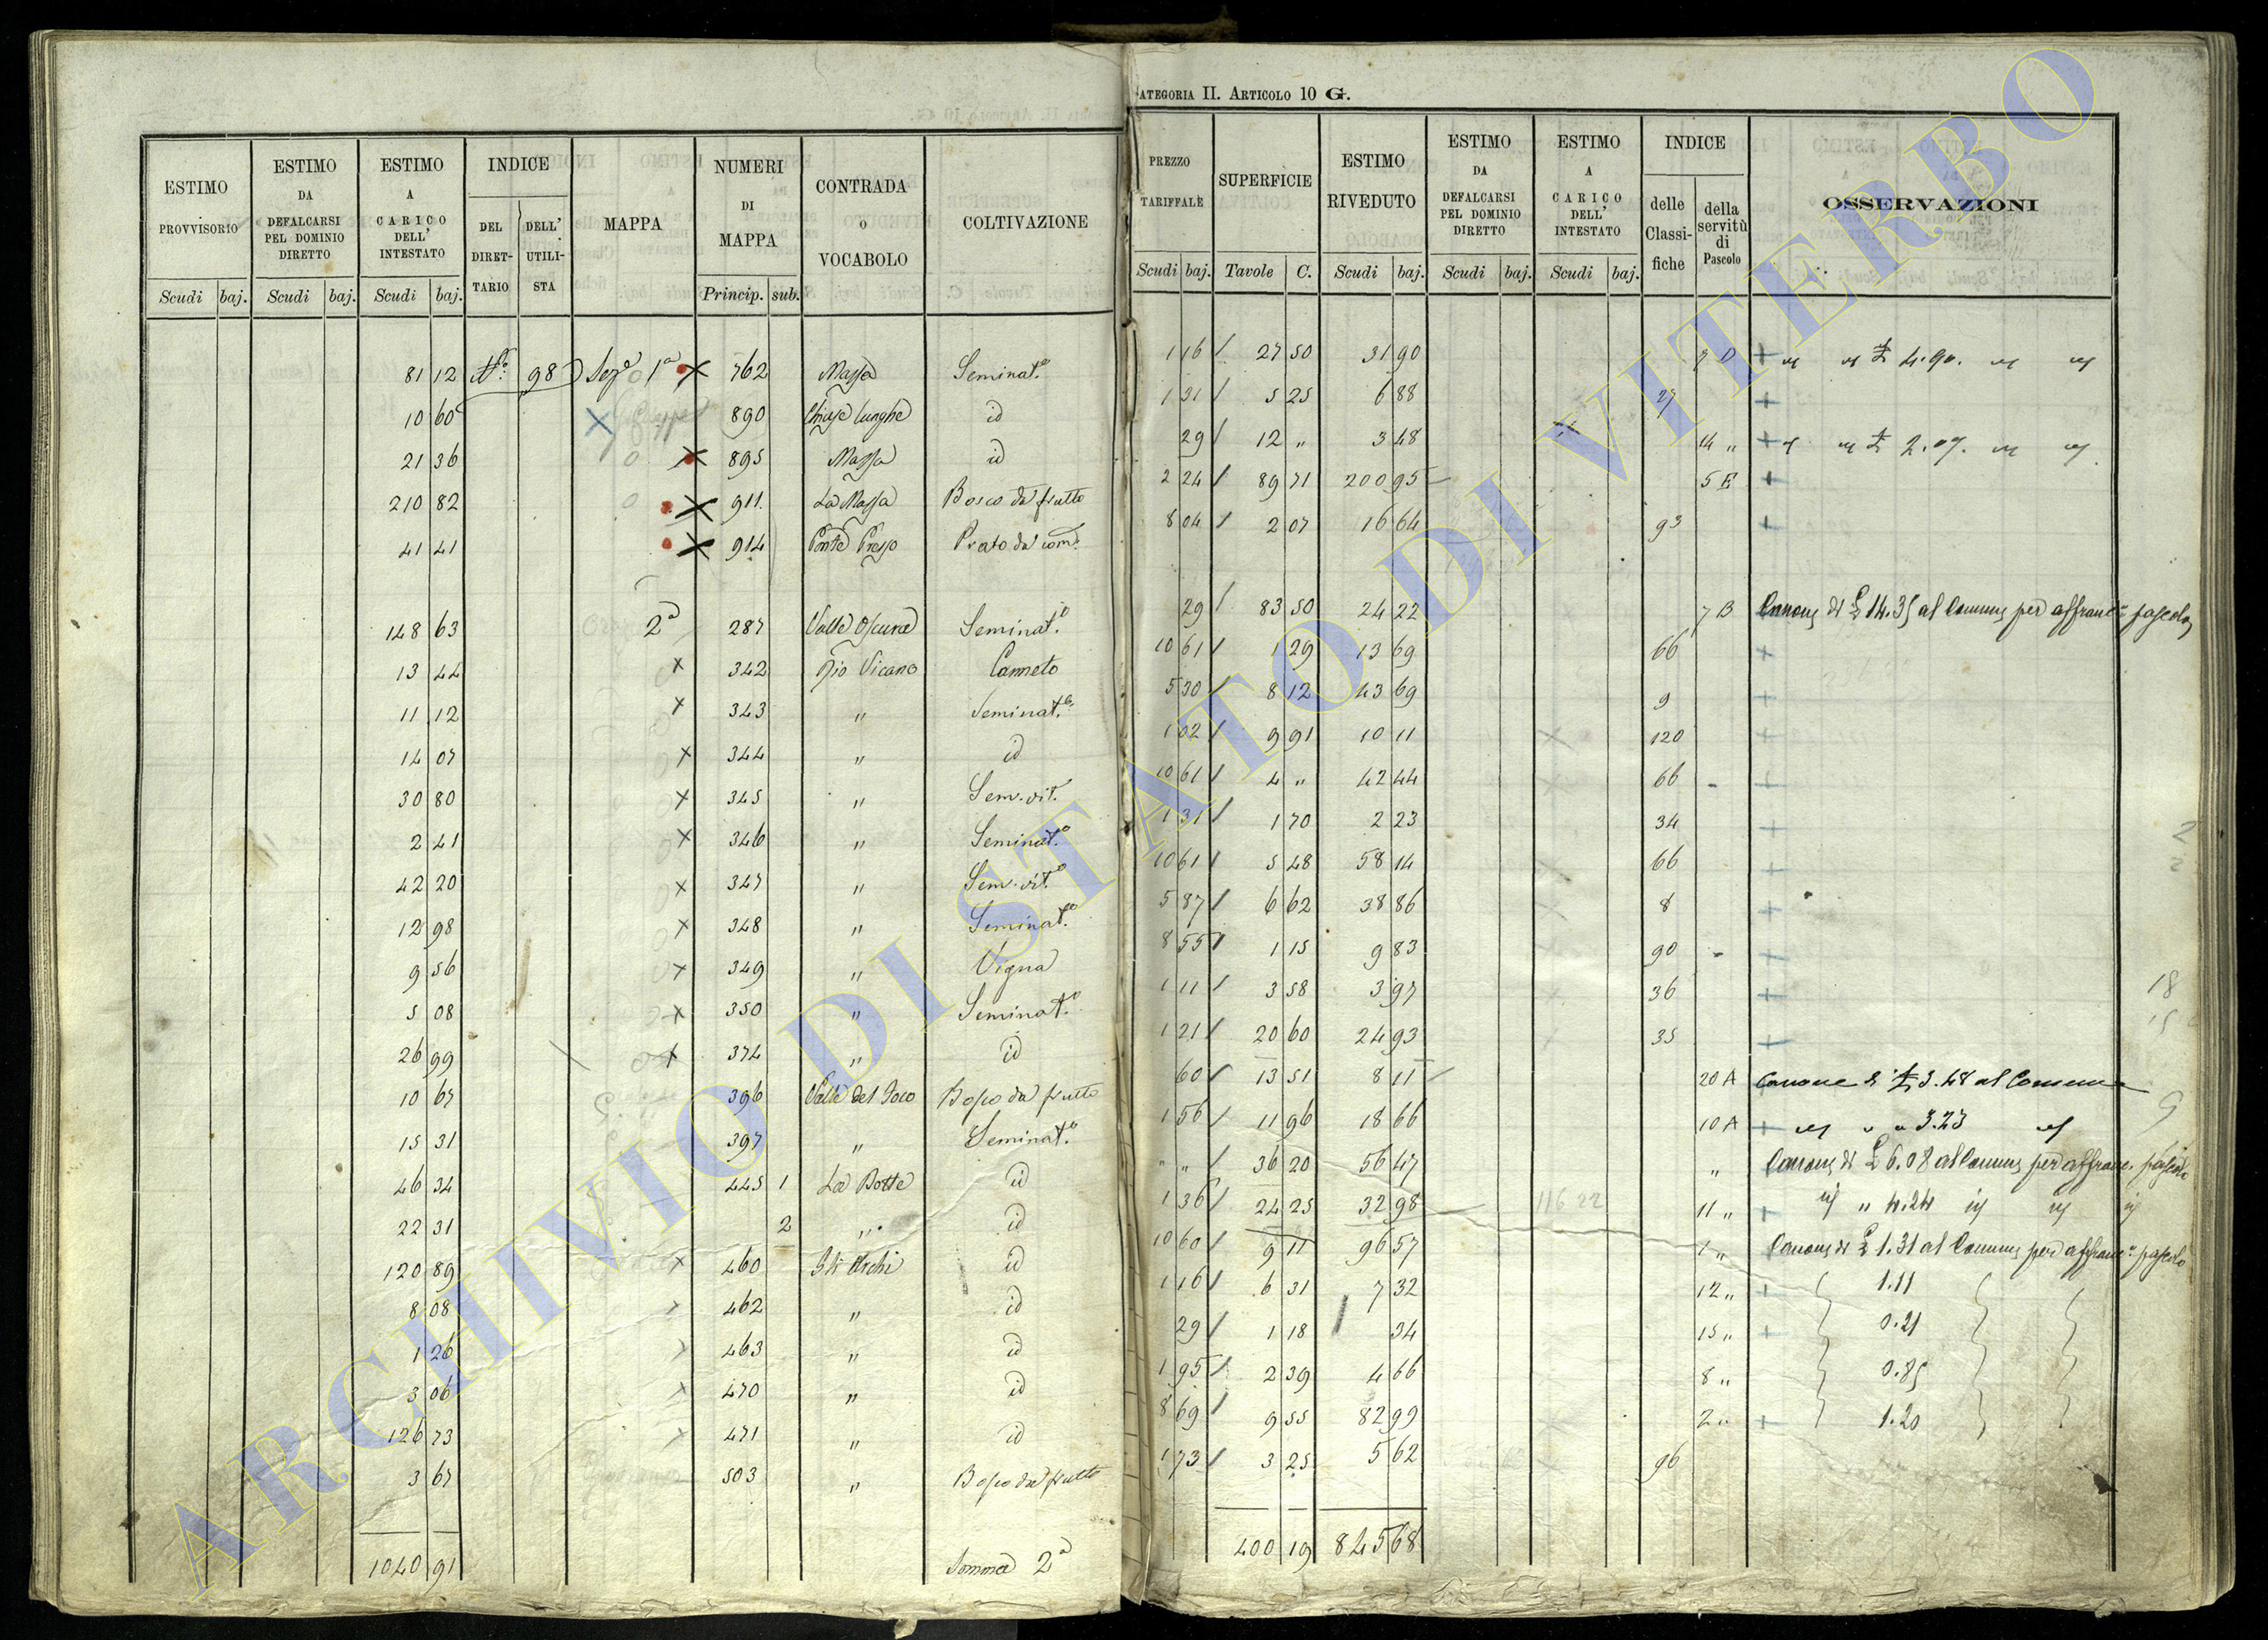 CATEGORIA II. ARTICOLO 10 G.
ESTIMO PROVVISORIO
ESTIMO DA DEFALCARSI PEL DOMINIO DIRETTO
ESTIMO A CARICO DELL' INTESTATO
INDICE
DEL DIRETTARIO
DELL' UTILISTA
MAPPA
NUMERI DI MAPPA
CONTRADA o VOCABOLO
COLTIVAZIONE
Scudi baj. Scudi baj. Scudi baj. Princip. sub.
81 12 N.º 98 Sez.e 1ª 762 Massa Seminat.o
10 60 890 Chiuse lunghe id
21 36 895 Massa id
210 82 911 La Massa Bosco da frutto
41 41 914 Prato da
148 63 2ª 287 Valle Oscura Seminat.o
13 44 342 Rio Vicano Canneto
11 12 343 " Seminat.o
14 07 344 " id
30 80 345 " Sem. vit.
2 41 346 " Seminat.o
42 20 347 " Sem. vit.o
12 98 348 " Seminat.o
9 56 349 " Vigna
5 08 350 " Seminat.o
26 99 374 " id
10 67 396 Valle del Foco Bosco da frutto
15 31 397 " Seminat.o
46 34 445 1 La Botte id
22 31 2 " id
120 89 460 Gli Archi id
8 08 462 " id
1 26 463 " id
3 06 470 " id
126 73 471 " id
3 67 503 " Bosco da frutto
1040 91 Somma 2ª
PREZZO TARIFFALE
SUPERFICIE
ESTIMO RIVEDUTO
ESTIMO DA DEFALCARSI PEL DOMINIO DIRETTO
ESTIMO A CARICO DELL' INTESTATO
INDICE
delle Classifiche
della servitù di Pascolo
OSSERVAZIONI
Scudi baj. Tavole C. Scudi baj. Scudi baj. Scudi baj.
1 16 27 50 31 90 7 D 4.90.
1 31 5 25 6 88 27
29 12 " 3 48 14 " 2.07.
2 24 89 71 200 95 5 E
8 04 2 07 16 64 93
29 83 50 24 22 7 B Canone di £ 14.35 al Comune per affranc.e pascolo
10 61 1 29 13 69 66
5 30 8 12 43 69 9
1 02 9 91 10 11 120
10 61 4 " 42 44 66
1 31 1 70 2 23 34
10 61 5 48 58 14 66
5 87 6 62 38 86 8
8 55 1 15 9 83 90
1 11 3 58 3 97 36
1 21 20 60 24 93 35
60 13 51 8 11 20 A Canone di £ 3.48 al Comune
1 56 11 96 18 66 10 A 3.23
" " 36 20 56 47 " Canone di £ 6.08 al Comune per affranc. pascolo
1 36 24 25 32 98 116 22 11 " " 4.24
10 60 9 11 96 57 1 " Canone di £ 1.31 al Comune per affranc.e pascolo
1 16 6 31 7 32 12 " 1.11
29 1 18 34 15 " 0.21
1 95 2 39 4 66 8 " 0.85
8 69 9 55 82 99 2 " 1.20
1 73 3 25 5 62 96
400 19 845 68
2
18
15
9
ARCHIVIO DI STATO DI VITERBO